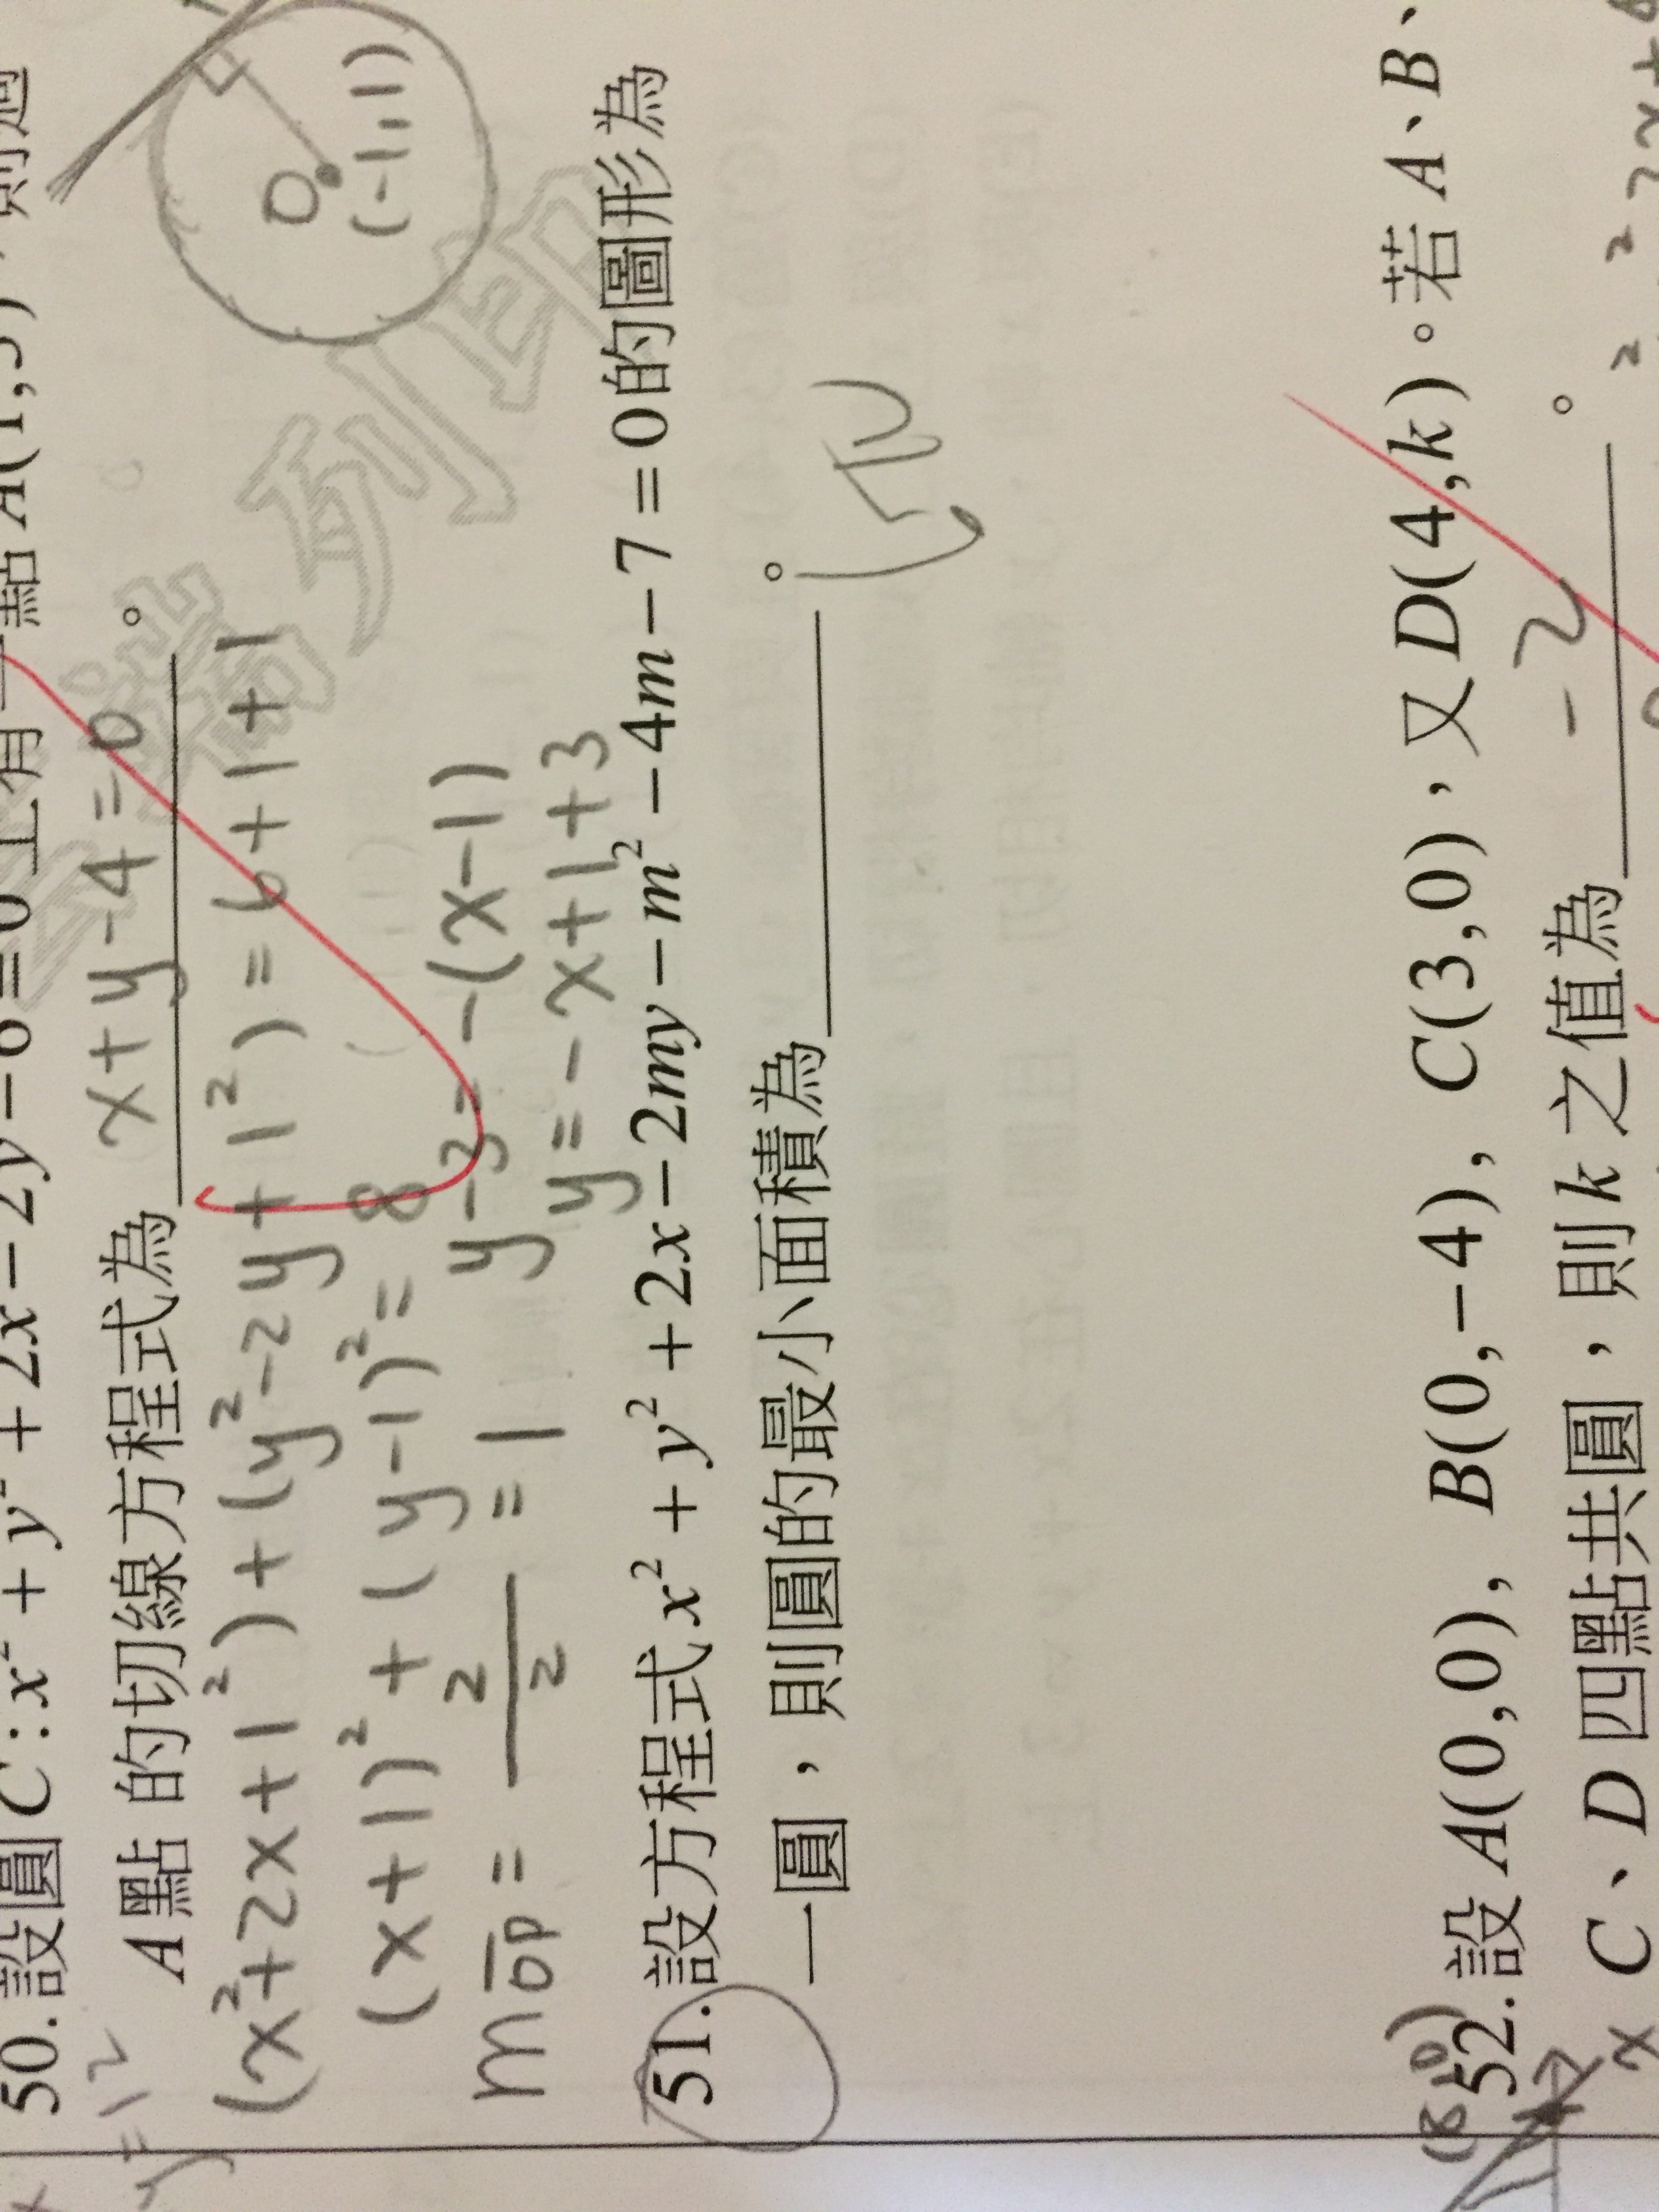 50. 設圓 C : x² + y² + 2x − 2y − 6 = 0 上有一點 A(1,3)，則過
x + y − 4 = 0
A 點 的切線方程式為________。
(x² + 2x + 1²) + (y² − 2y + 1²) = 6 + 1 + 1
(x + 1)² + (y − 1)² = 8
O
(−1, 1)
m OP = 2/2 = 1
y − 3 = −(x − 1)
y = − x + 1 + 3
51. 設方程式 x² + y² + 2x − 2my − m² − 4m − 7 = 0 的圖形為
一圓，則圓的最小面積為________。
52. 設 A(0,0), B(0,−4), C(3,0)，又 D(4,k)。若 A、B、
−2
C、D 四點共圓，則 k 之值為________。